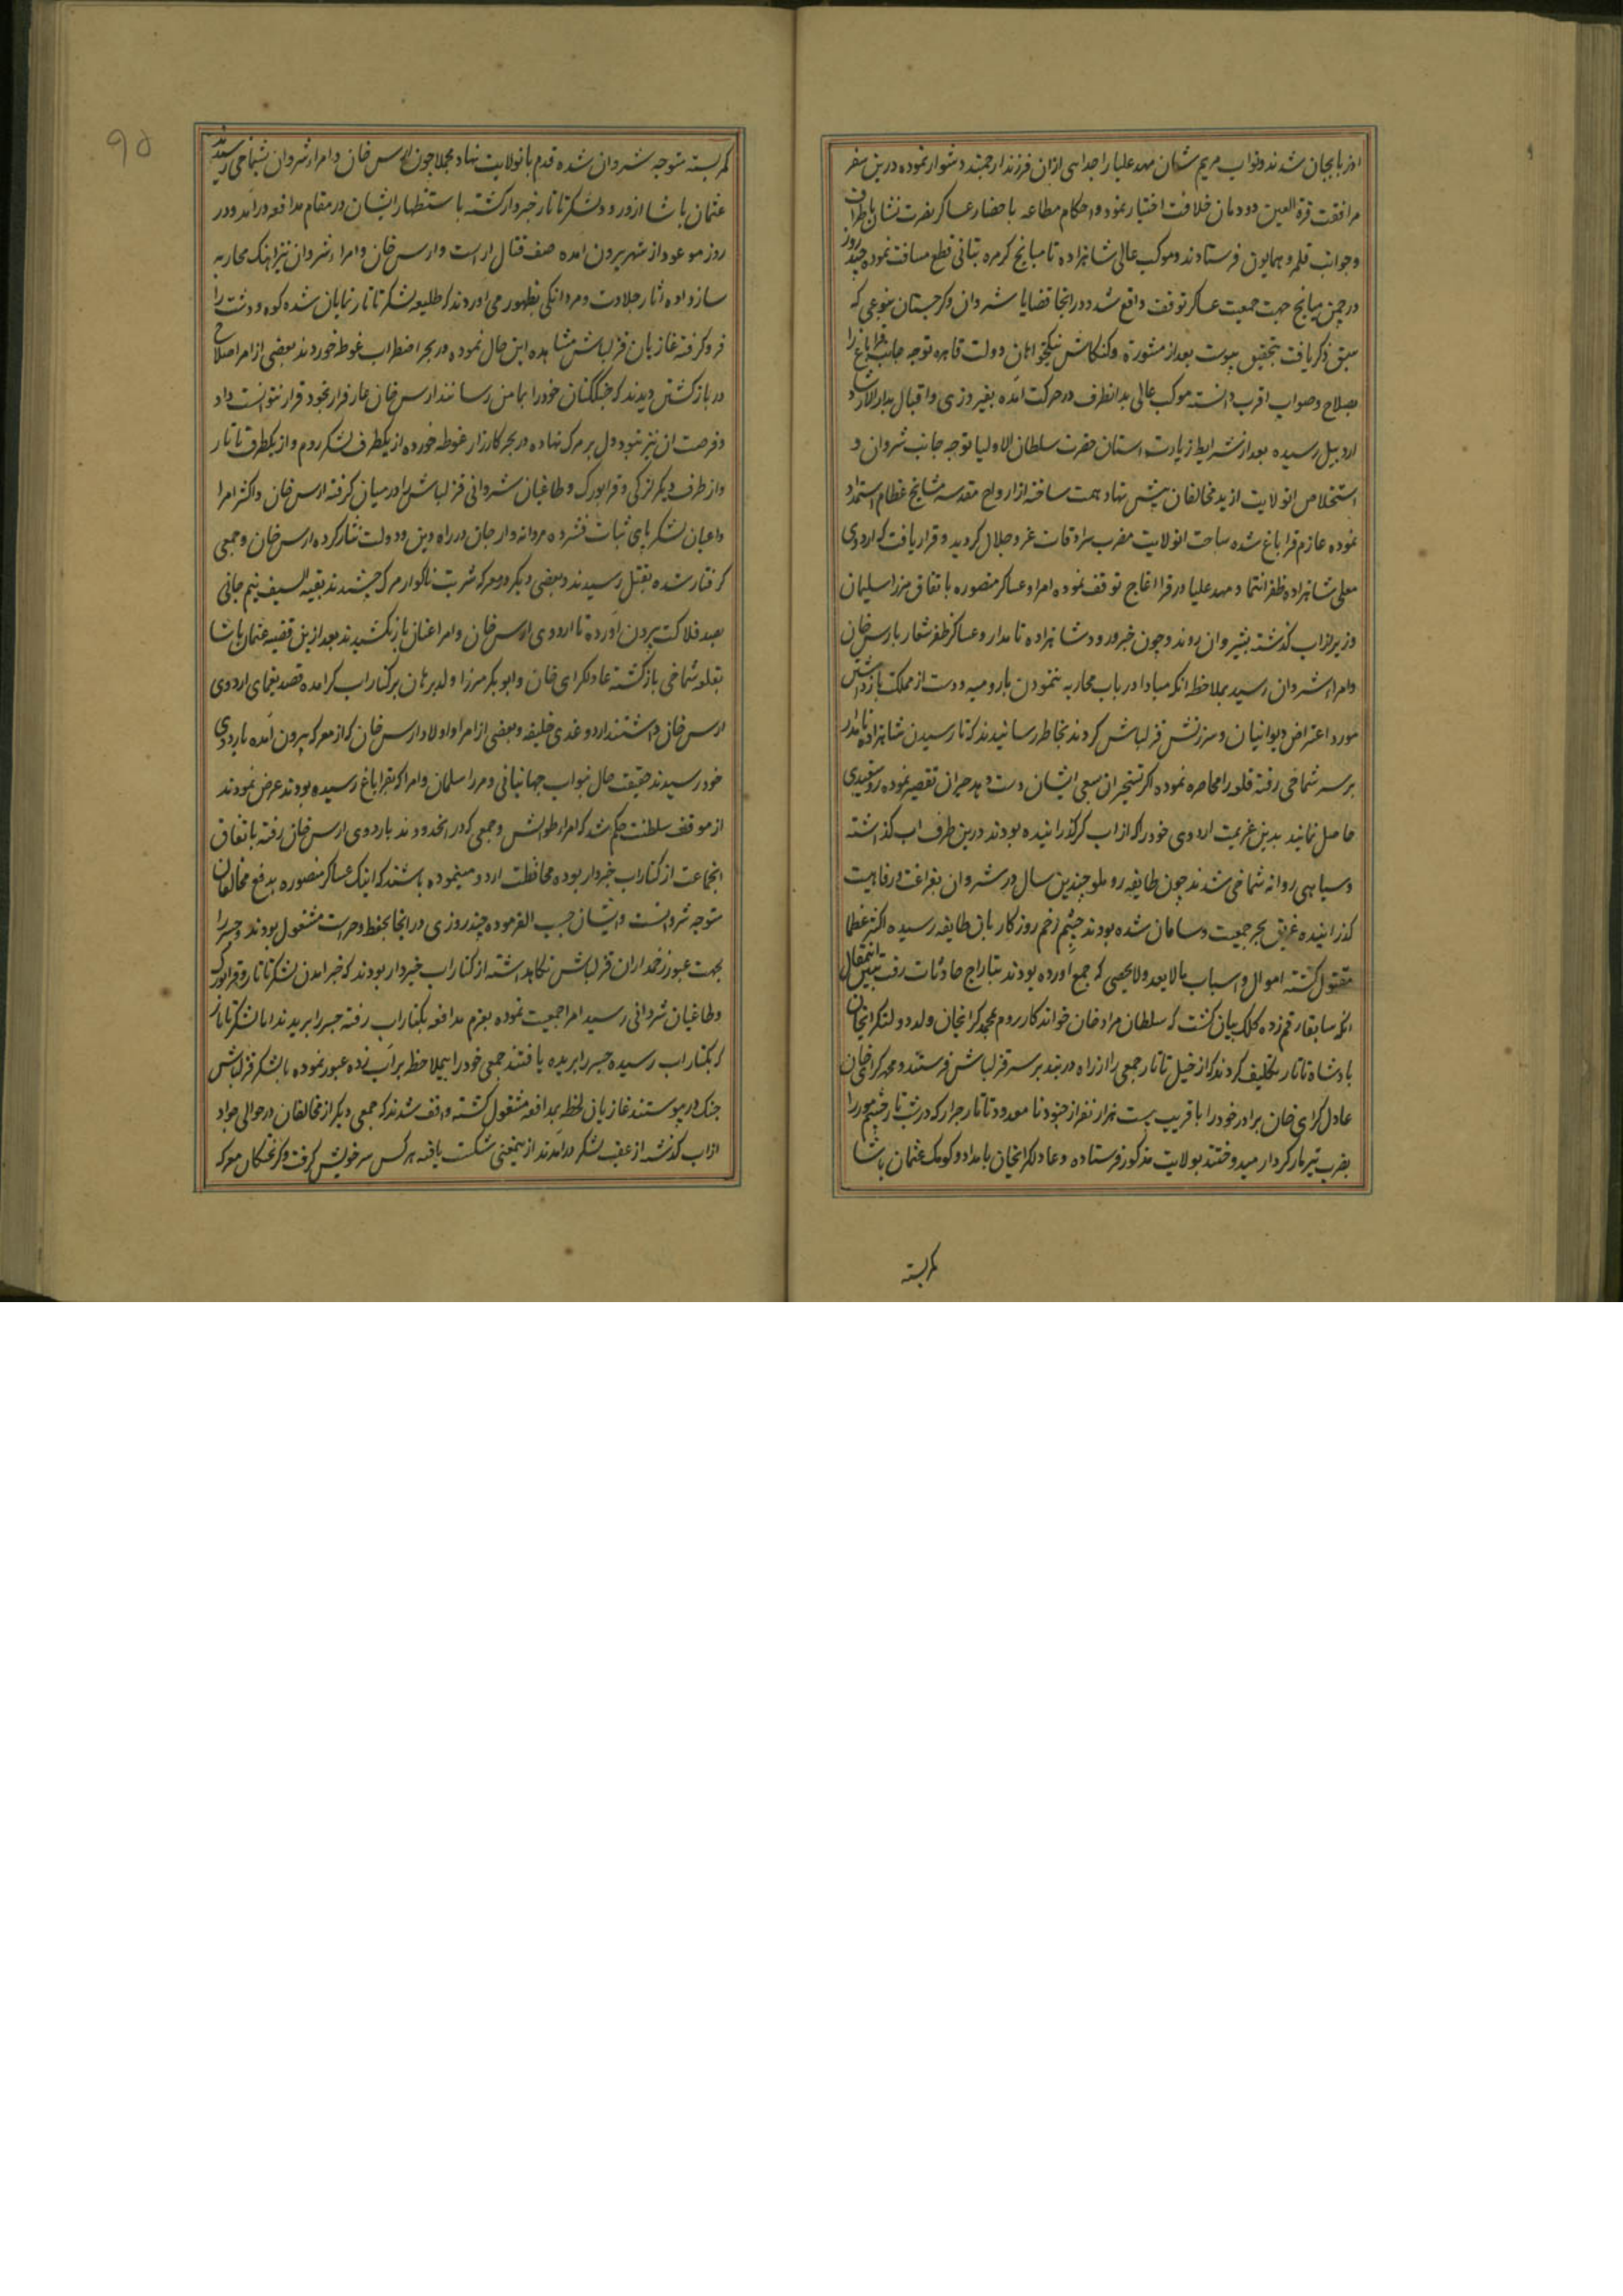 اذربایجان شدند و نواب مریم شان مهد علیا را جدایی ازان فرزند ارجمند دشوار نموده درین سفر
مرافقت قرة العین دودمان خلافت اختیار نمود و احکام مطاعه باحضار عساکر نصرت نشان باطراف
و جوانب قلمرو همایون فرستادند و موکب عالی شاهزاده تا میانج کرمرود بتانی قطع مسافت نموده چند روز
در چمن میانج جهت جمعیت عساکر توقف واقع شد و در انجا قضایا شروان و کرجستان بنوعی که
سبق ذکر یافت بتحقیق پیوست بعد از مشورة و کنکاش نیکخواهان دولت قاهره توجه جانب قراباغ را
بصلاح و صواب اقرب دانسته موکب عالی بدانطرف در حرکت آمده بفیروزی و اقبال بدار الارشاد
اردبیل رسیده بعد از شرایط زیارت استان حضرت سلطان الاولیا توجه جانب شروان و
استخلاص انولایت از ید مخالفان پیش نهاد همت ساخته از ارواح مقدسه مشایخ عظام استمداد
نموده عازم قراباغ شده ساحت انولایت مضرب سرادقات عز و جلال کردید و قرار یافت که اردوی
معلی شاهزاده ظفر انتما و مهد علیا در قرااغاج توقف نموده امرا و عساکر منصوره باتفاق میرزا سلیمان
وزیر از اب کذشته بشیروان روند و چون خبر ورود شاهزاده نامدار و عساکر ظفر شعار بارس خان
و امراء شروان رسید بملاحظه انکه مبادا در باب محاربه ننمودن با رومیه و دست از مملکت بازداشتن
مورد اعتراض دیوانیان و سرزنش قزلباش کردند بخاطر رسانیدند که تا رسیدن شاهزاده نامدار
بر سر شماخی رفته قلعه را محاصره نموده اکر تسخیر ان بسعی ایشان دست دهد جبران تقصیر نموده روسفیدی
حاصل نمایند بدین عزیمت اردوی خود را که از اب کر کذرانیده بودند درین طرف اب کذاشته
و سپاهی روانه شماخی شدند چون طایفه روملو چندین سال در شروان بفراغت و رفاهیت
کذرانیده غریق بحر جمعیت و سامان شده بودند چشم زخم روزکار بان طایفه رسیده اکثر عظما
مقتول کشته اموال و اسباب مالا یعد و لا یحصی که جمع آورده بودند بتاراج حادثات رفت تبیین اینمقال
انکه سابقا رقم زده کلک بیان کشت که سلطان مراد خان خواندکار روم محمد کرایخان ولد دولتکرایخان
پادشاه تاتار تکلیف کردند که از خیل تاتار جمعی را از راه دربند بر سر قزلباش فرستند و محمد کرای خان
عادل کرای خان برادر خود را با قریب بیست هزار نفر از جنود نامعدود تاتار جرار که در شب تار چشم مور را
بضرب تیر مار کردار میدوختند بولایت مذکور فرستاده و عادلکرایخان بامداد و کومک عثمان پاشا
کمر بسته
کمر بسته متوجه شروان شده قدم بانولایت نهاد مجملا چون ارس خان و امراء شروان بشماخی رسیدند
عثمان پاشا از ورود لشکر تاتار خبردار کشته باستظهار ایشان در مقام مدافعه درآمد و در
روز موعود از شهر بیرون آمده صف قتال اراست و ارس خان و امراء شروان نیز اهنک محاربه
ساز داده اثار جلادت و مردانکی بظهور می اوردند که طلیعه لشکر تاتار نمایان شده کوه و دشت را
فرو کرفته غازیان قزلباش مشاهده این حال نموده در بحر اضطراب غوطه خوردند بعضی از امرا صلاح
در بازکشتن دیدند که جنک کنان خود را بمامن رسانند ارس خان عار فرار بخود قرار نتوانست داد
و فرصت ان نیز نبود دل بر مرک نهاده در بحر کارزار غوطه خورده از یکطرف لشکر روم و از یکطرف تاتار
و از طرف دیکر لزکی و قرابورک و طاغیان شروانی قزلباش را در میان کرفته ارس خان و اکثر امرا
و اعیان لشکر پای ثبات فشرده مردانه وار جان در راه دین و دولت نثار کرده ارس خان و جمعی
کرفتار شده بقتل رسیدند و بعضی دیکر در معرکه شربت ناکوار مرک چشیدند بقیه السیف نیم جانی
بصد فلاکت بیرون آورده تا اردوی ارس خان و امرا عنان باز نکشیدند بعد ازین قضیه عثمان پاشا
بقلعه شماخی بازکشته عادلکرای خان و ابوبکر میرزا ولد برهان بر کنار اب کر امده قصد یغمای اردوی
ارس خان داشتند اردوغدی خلیفه و بعضی از امرا و اولاد ارس خان که از معرکه بیرون آمده باردوی
خود رسیدند حقیقت حال بنواب جهانبانی و میرزا سلمان و امرا که بقراباغ رسیده بودند عرض نمودند
از موقف سلطنت حکم شد که امراء طوالش و جمعی که در انحدودند باردوی ارس خان رفته باتفاق
انجماعت از کنار اب خبردار بوده محافظت اردو مینموده باشند که اینک عساکر منصوره بدفع مخالفان
متوجه شروانست و ایشان حسب الفرموده چند روزی در انجا بحفظ و حراست مشغول بودند و جسر را
بجهت عبور زخمداران قزلباش نکاهداشته از کنار اب خبردار بودند که خبر امدن لشکر تاتار و قرابورک
و طاغیان شروانی رسید امرا جمعیت نموده بعزم مدافعه بکنار اب رفته جسر را بریدند اما لشکر تاتار
که بکنار اب رسیده جسر را بریده یافتند جمعی خود را بیملاحظه بر اب زده عبور نموده با لشکر قزلباش
جنک در پیوستند غازیان لحظه بمدافعه مشغول کشته واقف شدند که جمعی دیکر از مخالفان در حوالی جواد
از اب کذشته از عقب لشکر درآمدند ازینمعنی شکست یافته هر کس سر خویش کرفت و کرختکان معرکه